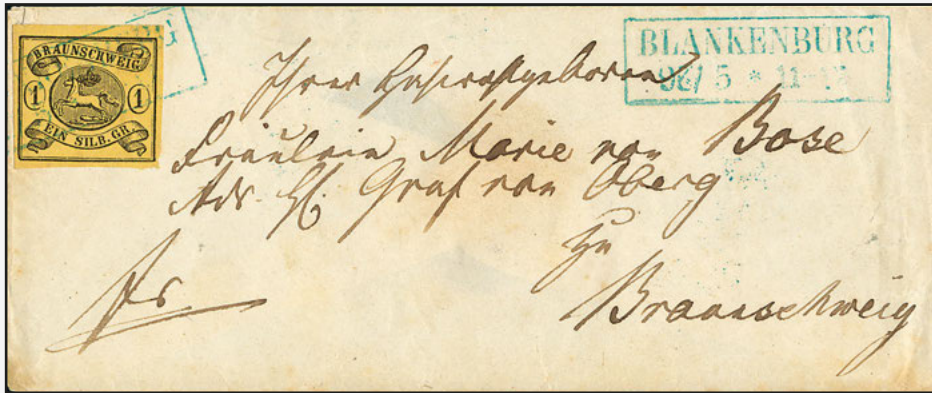 BRAUNSCHWEIG
1 1
EIN SILB. GR.
BLANKENBURG
5 * 11-
Ihrer
Fräulein Marie von Bose
Adr. H. Graf von Oberg
zu
Braunschweig